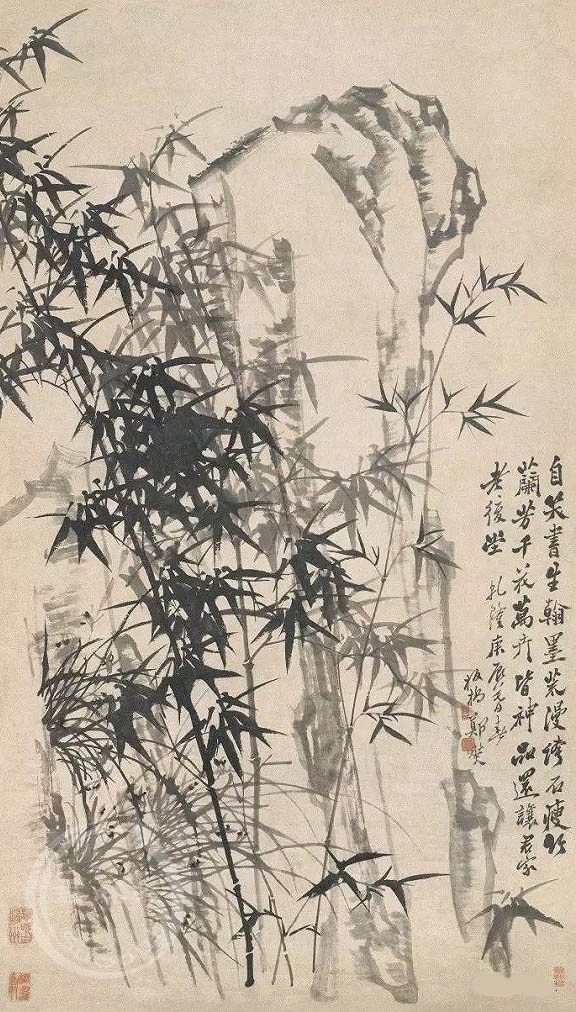 自笑書生翰墨荒漫誇石瘦竹
蘭芳千花萬卉皆神品還讓君家
老復堂
乾隆庚辰春
板橋鄭燮